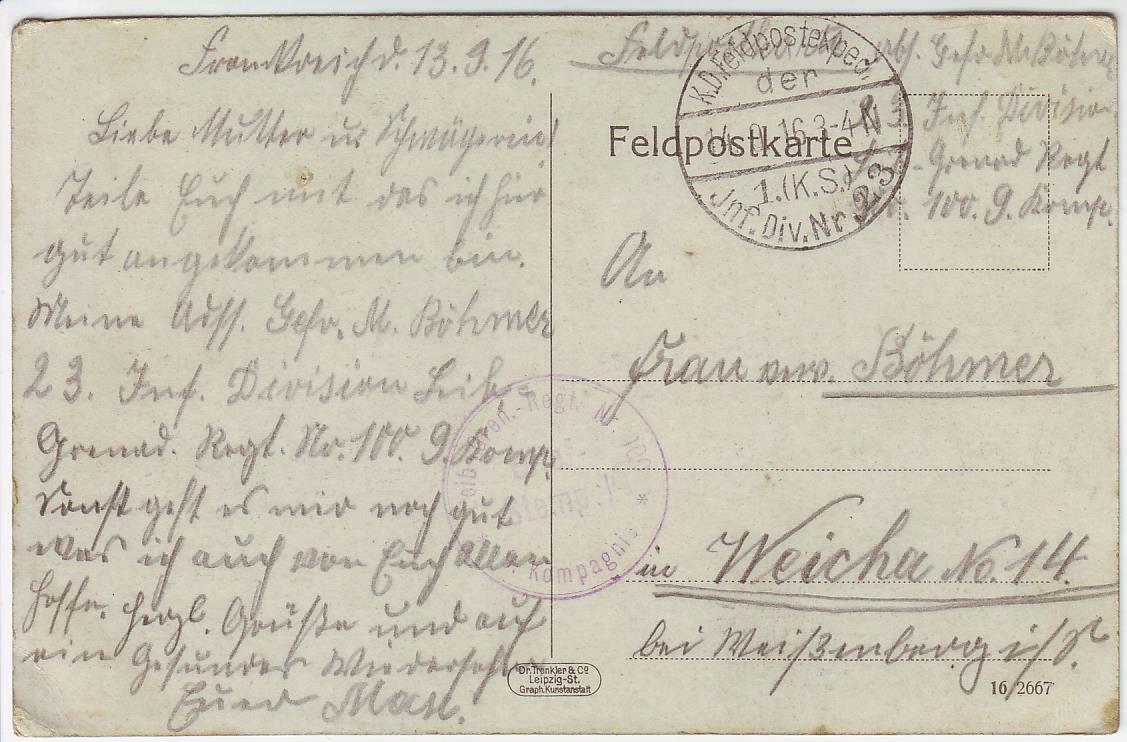 Frankreich d. 13.9.16.
Liebe Mutter u. Schwägerin!
Teile Euch mit das ich hir
gut angekommen bin.
Meine Adss. Gefr. M. Böhmer
23. Inf. Division Leib
Grenad. Regt. No. 100. 9. Komp.
Sonst geht es mir noch gut
was ich auch von Euch allen
hoffe. Herzl. Grüße und auf
ein Gesundes Wiedersehen
Euer Max.
Feldpost abs. Gefr. M. Böhmer
23. Inf. Division
Leib-Grenad Regt
No. 100. 9. Komp.
K.D.Feldpostexped.
der
14.9.16.3-4N
1.(K.S.)
Jnf.Div.Nr.23
Feldpostkarte
An
Frau verw. Böhmer
in Weicha No. 14.
bei Weißenberg i/S.
Leib-Gren.-Regt. Nr. 100
Stempel
Kompagnie *
Dr. Trenkler & Co
Leipzig-St.
Graph. Kunstanstalt
16 2667